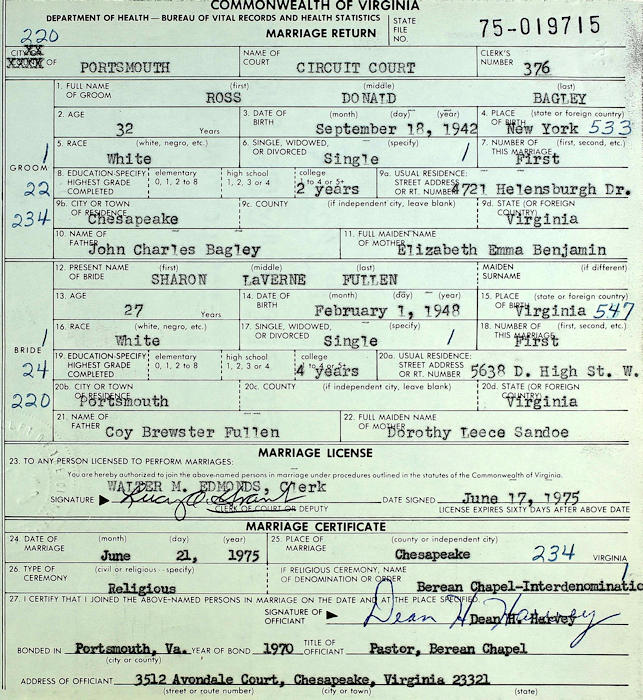 COMMONWEALTH OF VIRGINIA
DEPARTMENT OF HEALTH — BUREAU OF VITAL RECORDS AND HEALTH STATISTICS
220 MARRIAGE RETURN STATE FILE NO. 75-019715
CITY OR XX XXXX OF PORTSMOUTH NAME OF COURT CIRCUIT COURT CLERK'S NUMBER 376
1. FULL NAME OF GROOM (first) (middle) (last)
ROSS DONALD BAGLEY
2. AGE 32 Years 3. DATE OF BIRTH (month) (day) (year) September 18, 1942 4. PLACE OF BIRTH (state or foreign country) New York 533
5. RACE (white, negro, etc.) White 6. SINGLE, WIDOWED, OR DIVORCED (specify) Single / 7. NUMBER OF THIS MARRIAGE (first, second, etc.) First
GROOM / 22 234
8. EDUCATION-SPECIFY HIGHEST GRADE COMPLETED elementary 0, 1, 2 to 8 high school 1, 2, 3 or 4 college 1 to 4 or 5+ 2 years 9a. USUAL RESIDENCE: STREET ADDRESS OR RT. NUMBER 4721 Helensburgh Dr.
9b. CITY OR TOWN OF RESIDENCE Chesapeake 9c. COUNTY (if independent city, leave blank) 9d. STATE (OR FOREIGN COUNTRY) Virginia
10. NAME OF FATHER John Charles Bagley 11. FULL MAIDEN NAME OF MOTHER Elizabeth Emma Benjamin
12. PRESENT NAME OF BRIDE (first) (middle) (last) MAIDEN SURNAME (if different)
SHARON LaVERNE FULLEN
13. AGE 27 Years 14. DATE OF BIRTH (month) (day) (year) February 1, 1948 15. PLACE OF BIRTH (state or foreign country) Virginia 547
16. RACE (white, negro, etc.) White 17. SINGLE, WIDOWED, OR DIVORCED (specify) Single / 18. NUMBER OF THIS MARRIAGE (first, second, etc.) First
BRIDE / 24 220
19. EDUCATION-SPECIFY HIGHEST GRADE COMPLETED elementary 0, 1, 2 to 8 high school 1, 2, 3 or 4 college 1 to 4 or 5+ 4 years 20a. USUAL RESIDENCE: STREET ADDRESS OR RT. NUMBER 5638 D. High St. W.
20b. CITY OR TOWN OF RESIDENCE Portsmouth 20c. COUNTY (if independent city, leave blank) 20d. STATE (OR FOREIGN COUNTRY) Virginia
21. NAME OF FATHER Coy Brewster Fullen 22. FULL MAIDEN NAME OF MOTHER Dorothy Leece Sandoe
MARRIAGE LICENSE
23. TO ANY PERSON LICENSED TO PERFORM MARRIAGES:
You are hereby authorized to join the above-named persons in marriage under procedures outlined in the statutes of the Commonwealth of Virginia.
WALTER M. EDMONDS, Clerk
SIGNATURE DATE SIGNED June 17, 1975
CLERK OF COURT OR DEPUTY LICENSE EXPIRES SIXTY DAYS AFTER ABOVE DATE
MARRIAGE CERTIFICATE
24. DATE OF MARRIAGE (month) (day) (year) June 21, 1975 25. PLACE OF MARRIAGE (county or independent city) Chesapeake 234 VIRGINIA
26. TYPE OF CEREMONY (civil or religious--specify) Religious IF RELIGIOUS CEREMONY, NAME OF DENOMINATION OR ORDER Berean Chapel-Interdenominatio /
27. I CERTIFY THAT I JOINED THE ABOVE-NAMED PERSONS IN MARRIAGE ON THE DATE AND AT THE PLACE SPECIFIED.
SIGNATURE OF OFFICIANT Dean H. Harvey Dean H. Harvey
BONDED IN Portsmouth, Va. YEAR OF BOND 1970 TITLE OF OFFICIANT Pastor, Berean Chapel
(city or county)
ADDRESS OF OFFICIANT 3512 Avondale Court, Chesapeake, Virginia 23321
(street or route number) (city or town) (state)